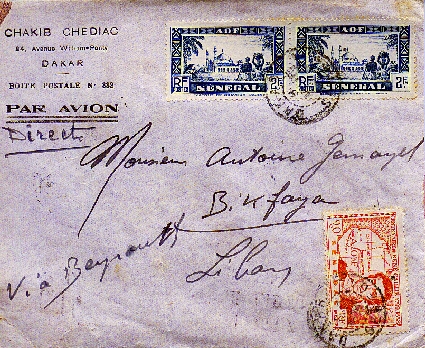 CHAKIB CHEDIAC
84, Avenue William-Ponty
DAKAR
BOITE POSTALE N° 333
PAR AVION
Direct
AOF
RF
SÉNÉGAL
AOF
RF
SÉNÉGAL
Monsieur Antoine Gemayel
Bikfaya
Via Beyrouth
Liban